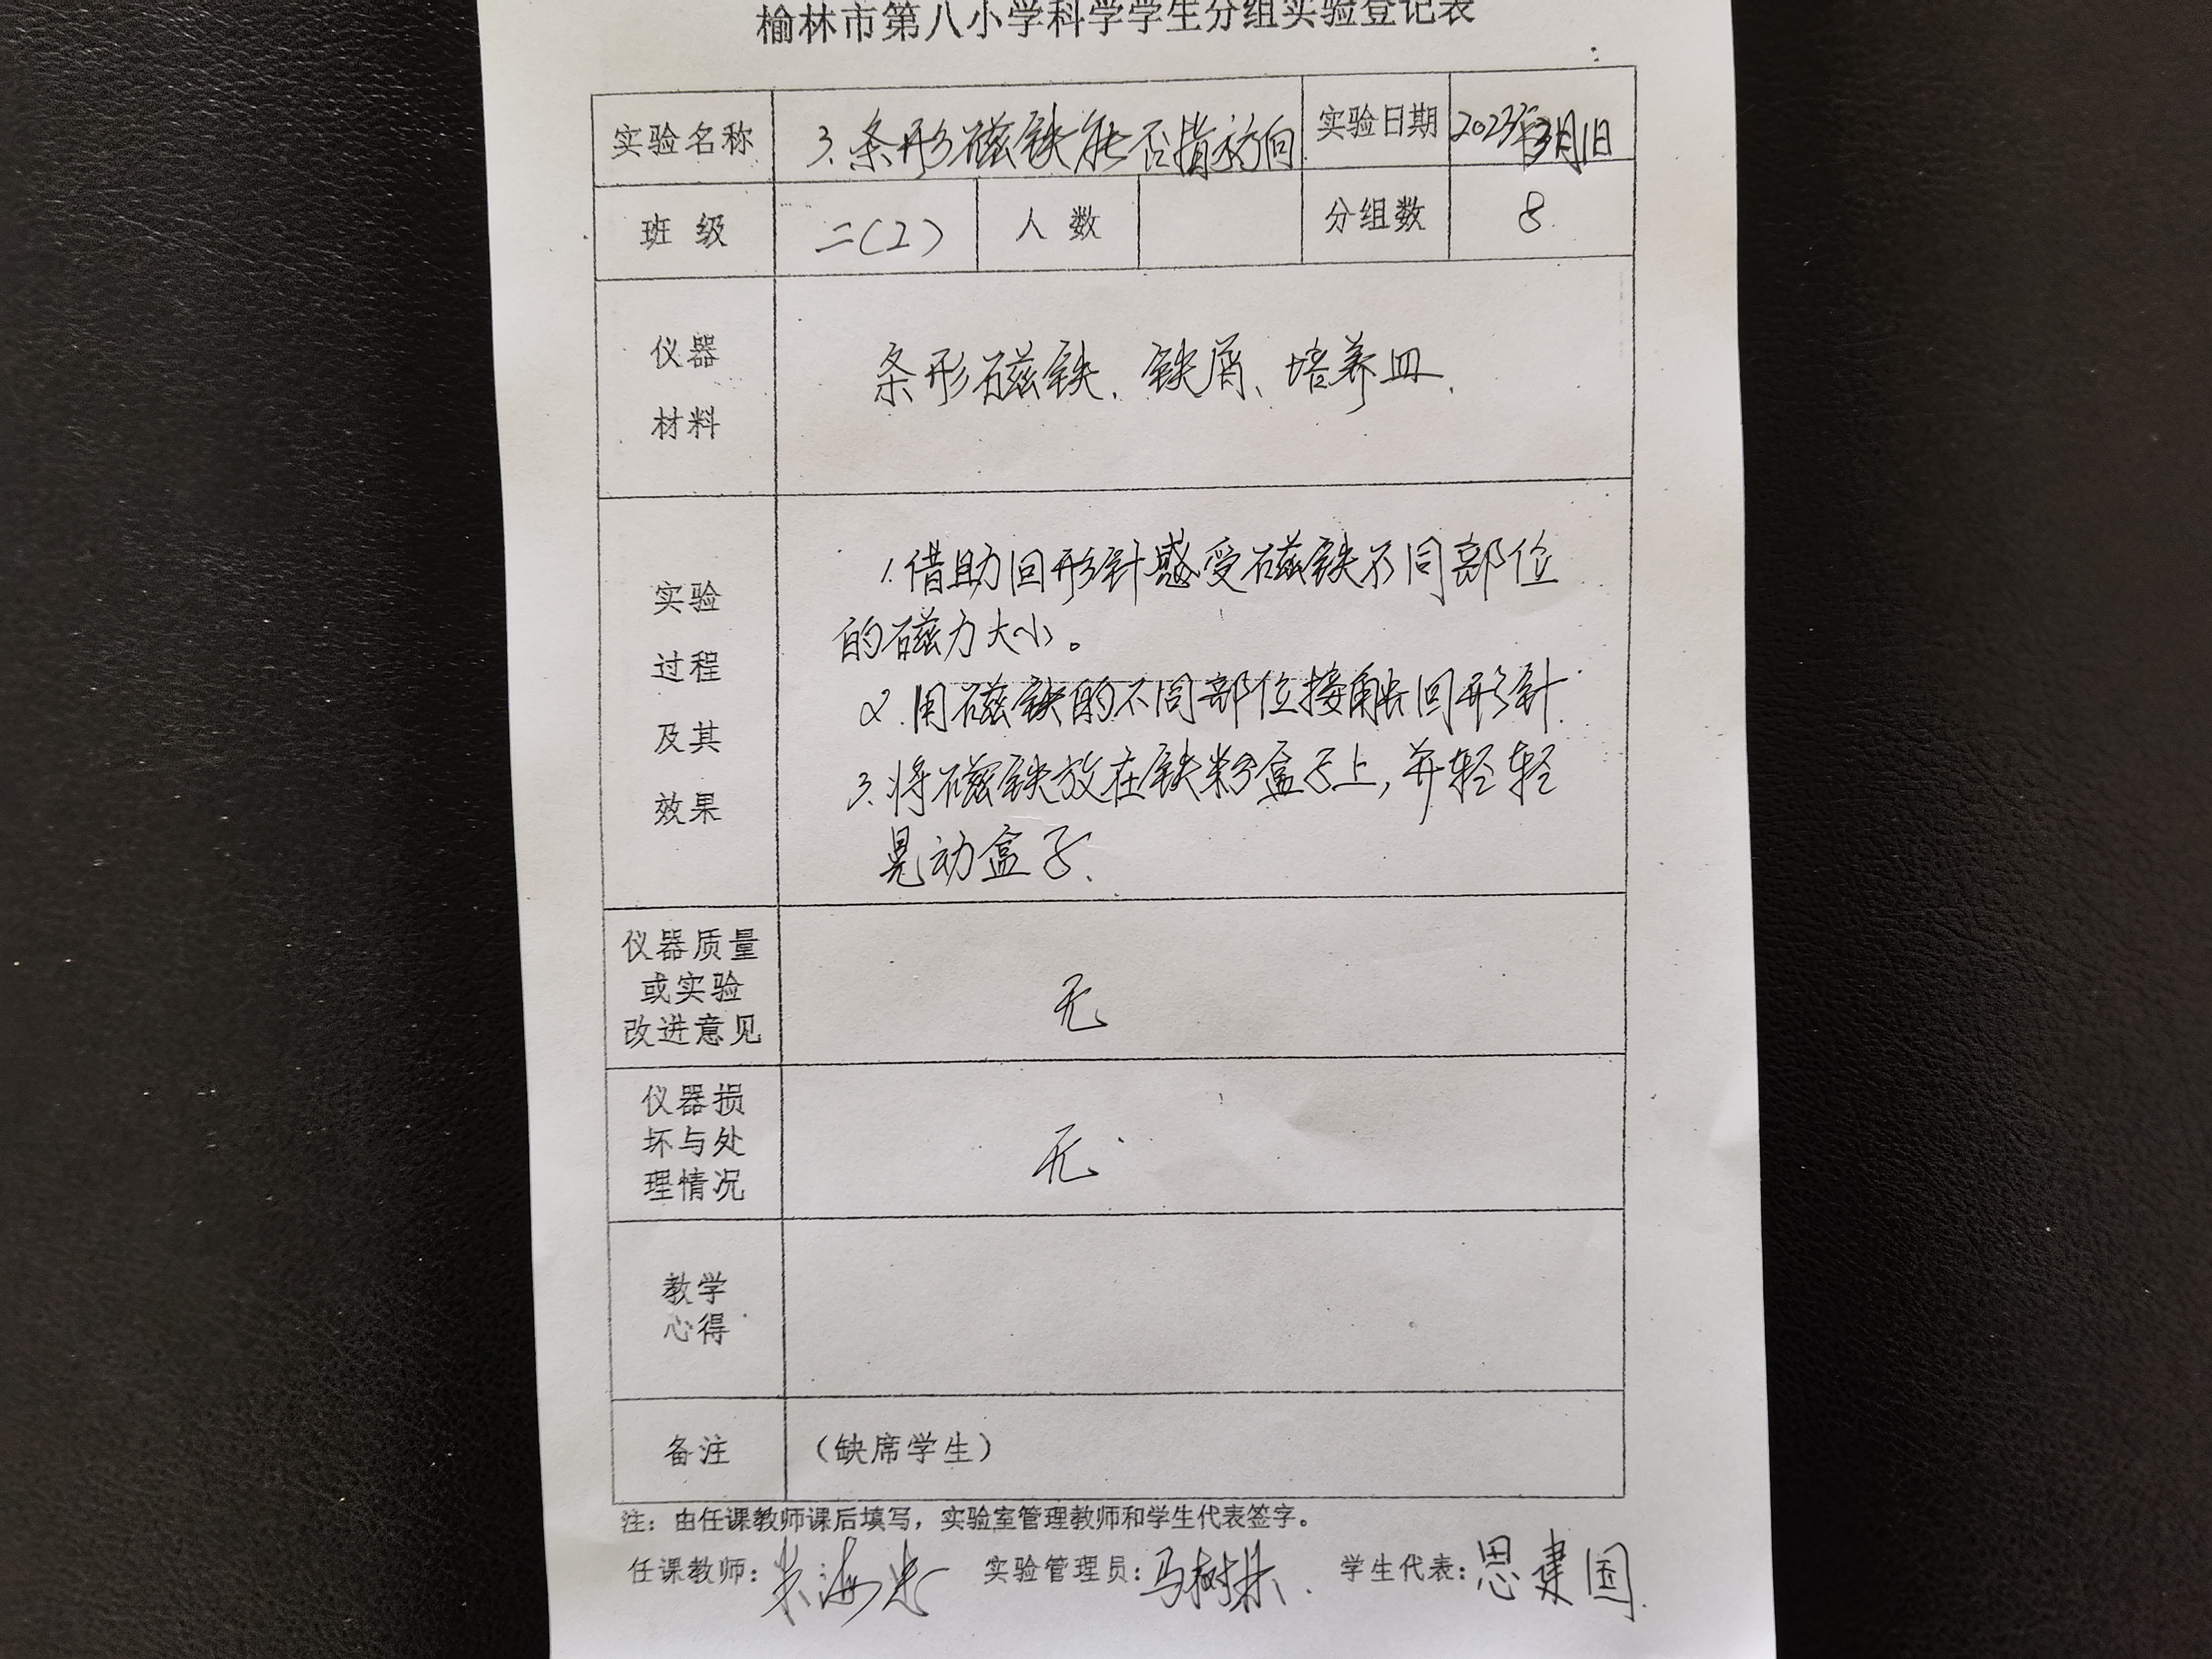 榆林市第八小学科学学生分组实验登记表
实验名称 3.条形磁铁能否指方向 实验日期 2023年3月1日
班 级 二(2) 人 数 分组数 8
仪器
材料
条形磁铁、铁屑、培养皿.
实验
过程
及其
效果
1.借助回形针感受磁铁不同部位
的磁力大小。
2.用磁铁的不同部位接触回形针.
3.将磁铁放在铁粉盒子上,并轻轻
晃动盒子.
仪器质量
或实验
改进意见
无
仪器损
坏与处
理情况
无
教学
心得
备注 (缺席学生)
注：由任课教师课后填写，实验室管理教师和学生代表签字。
任课教师: 实验管理员:马树林. 学生代表:思建国.